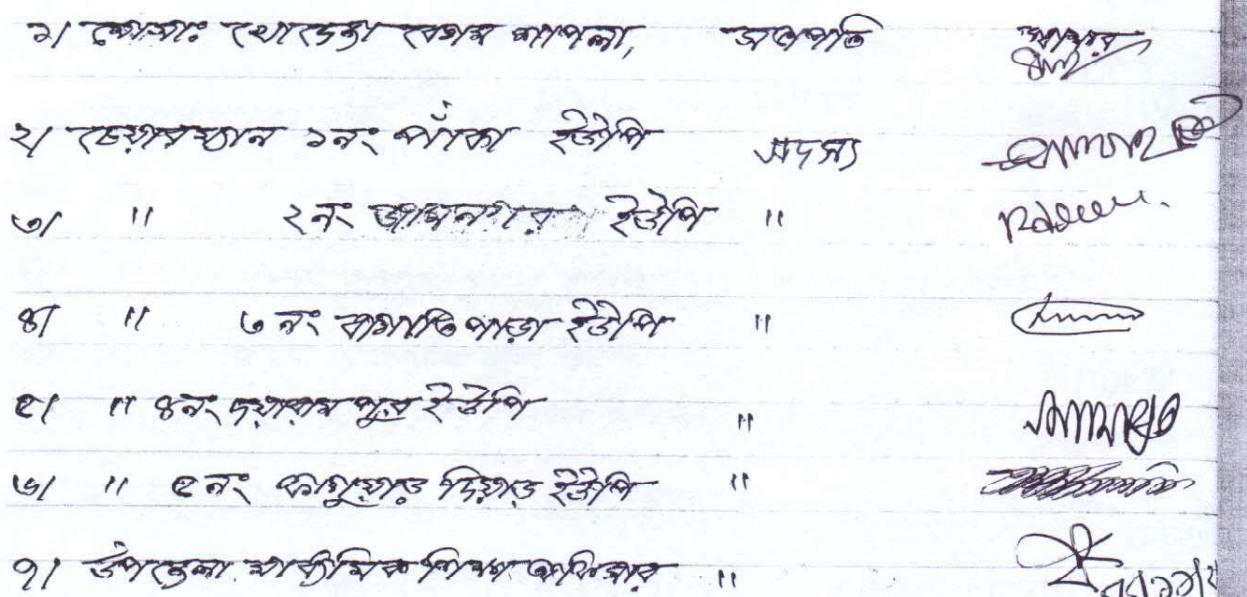 ১। মোসাঃ খোতেজা বেগম শাপলা, সভাপতি স্বাক্ষর
২। চেয়ারম্যান ১নং পাঁকা ইউপি সদস্য
৩। " ২নং জামনগর ইউপি "
৪। " ৩নং বাগাতিপাড়া ইউপি "
৫। " ৪নং দয়ারামপুর ইউপি "
৬। " ৫নং ফাগুয়াড় দিয়াড় ইউপি "
৭। উপজেলা মাধ্যমিক শিক্ষা অফিসার "